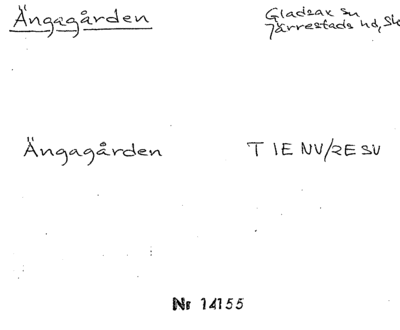 Ängagården
Gladsax sn
Järrestads hd, Sk
Ängagården
T 1E NV/2E SV
Nr 14155